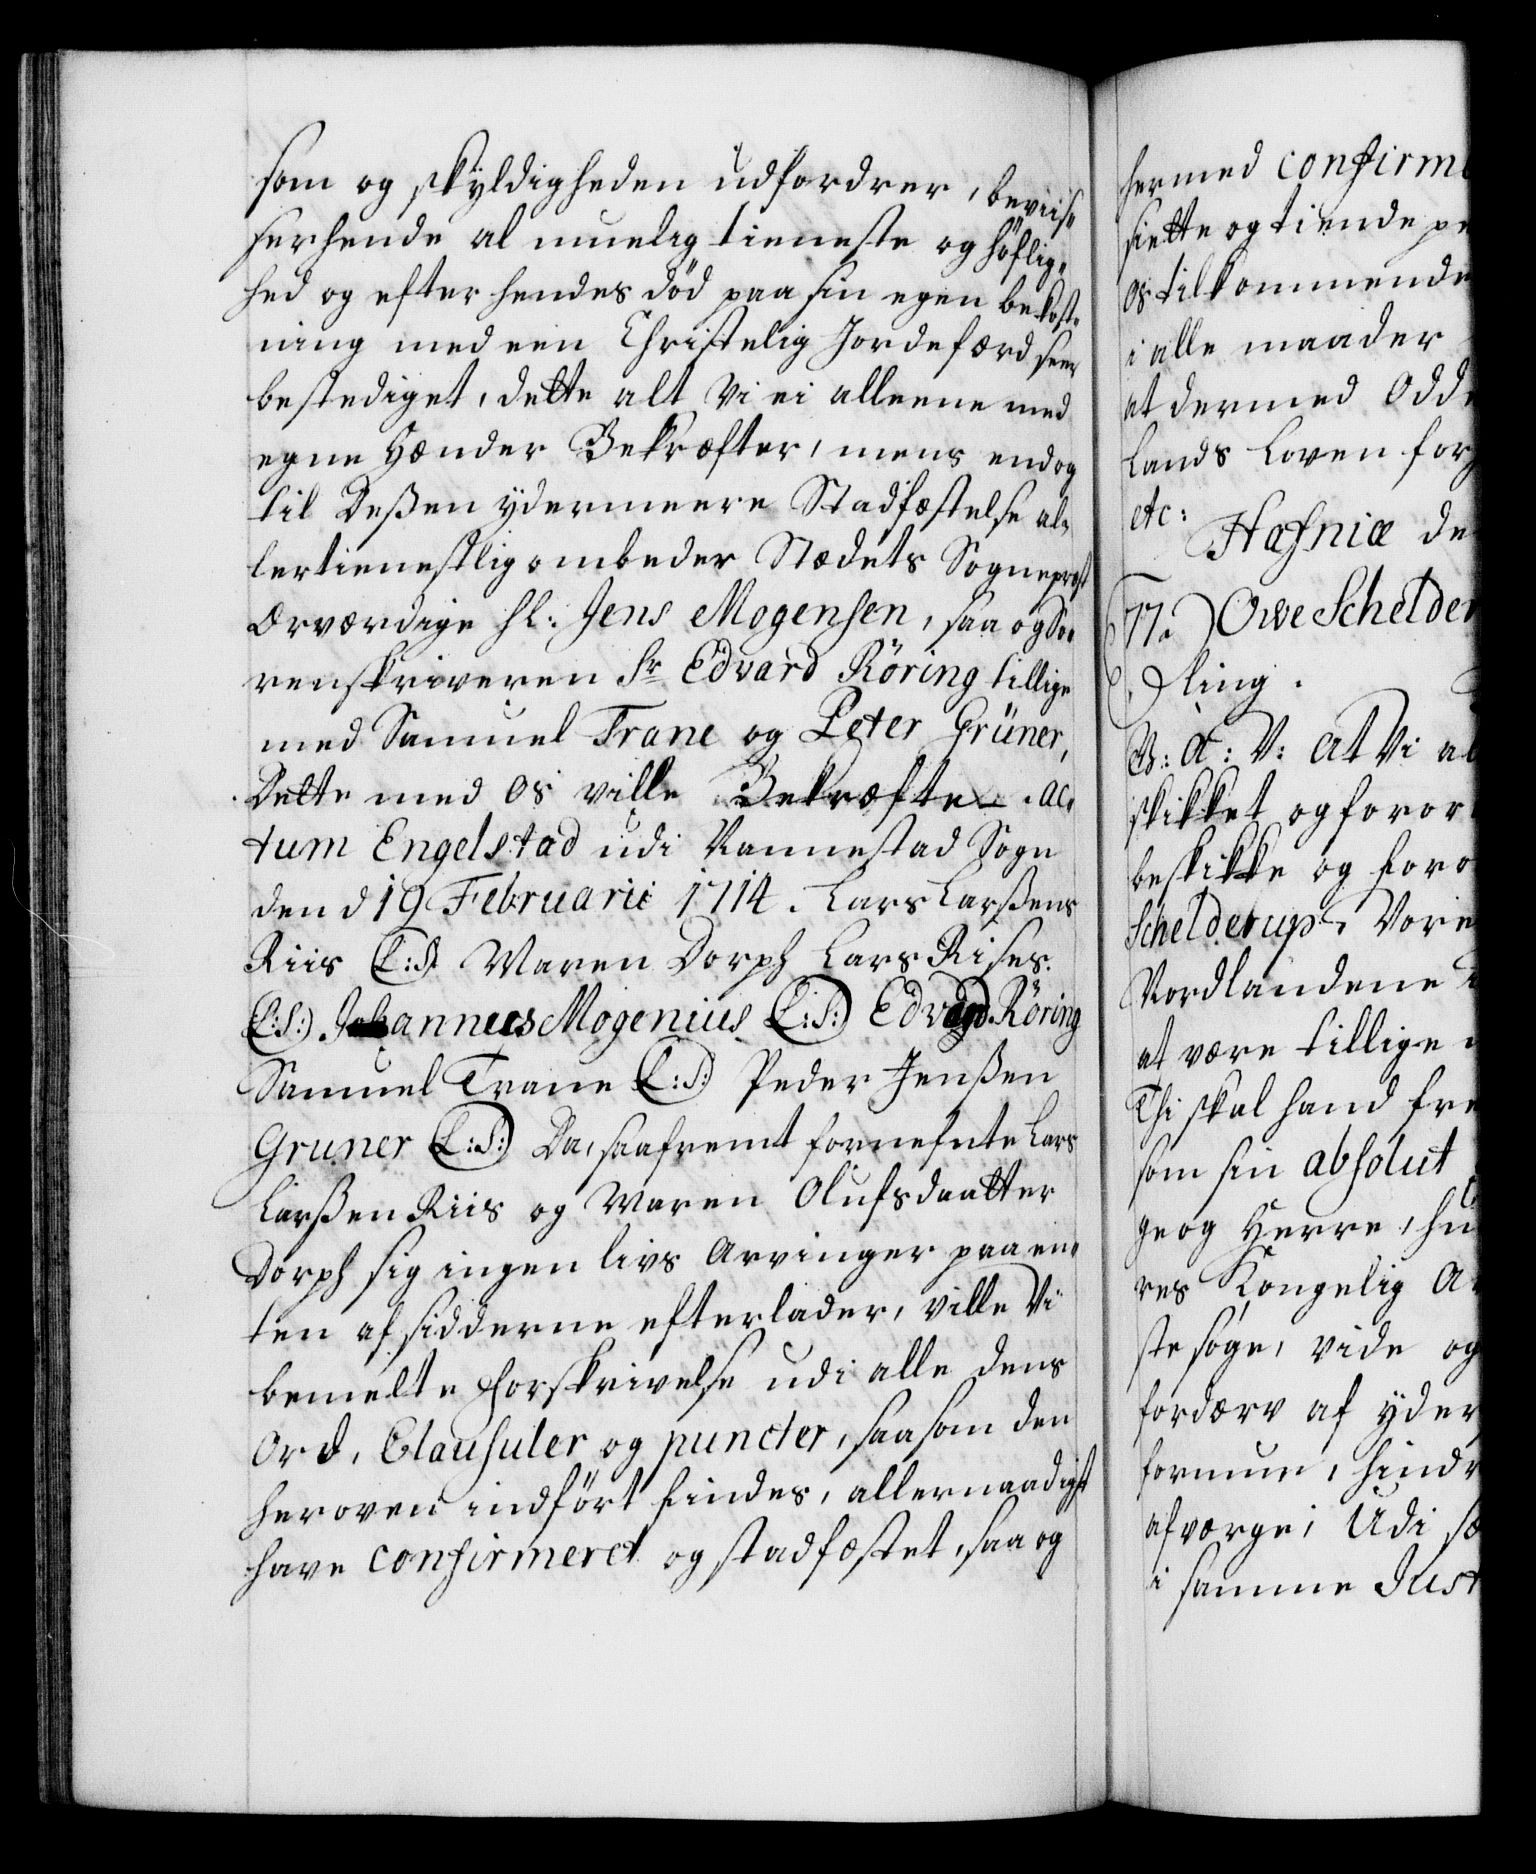 som og skyldigheden udfordrer, beviise
herhende al muelig tieneste og höflig-
hed og efter hendes död paa sin egen bekost-
ning med een Christelig Jordefærd seer
bestediget, dette alt Vi ei alleene med
egne Hænder Bekræfter, mens endog
til Deßen ydermeere Stadfæstelse al-
lertienestlig ombeder Stædets Sognepræst
Ærværdige hl: Jens Mogensen, saa og So-
renskriveren Sr Edvard Röring tillige
med Samuel Trane og Peter Grüner,
Dette med os ville Bekræfte. Ac-
tum Engelstad udi Vannestad Sogn
den d 19 Februarii 1714. Lars Larßens
Riis (L:S:) Maren Dorph Lars Rises.
(L:S:) Johannes Mogenius (L:S:) Edvard Röring
Samuel Trane (L:S:) Peder Jenßen
Gruner (L:S:) Da, saafremt fornefnte Lars
Larßen Riis og Maren Olufsdaatter
Dorph sig ingen livs Arvinger paa en-
ten af sidderne efterlader, ville Vi
bemelte forskrivelse udi alle dens
Ord, Clausuler og puncter, saasom den
heroven indfört findes, allernaadigst
have confirmeret og stadfæstet, saa og
hermed confirme
siette og tiende pe
os tilkommende
i alle maader
at dermed Odd
Lands Loven for
etc:
Hafniæ de
77. Owe Schelder
ling.
G: A: V: At Vi al
skikket og foror
beskikke og foro
Schelderup, Vore
Nordlandene
at være tillige
Thi skal hand fre
som sin absolut
ge og Herre, hu
res Kongelig A
ste söge, vide og
fordærv af yder
formue, hindr
afværge; Udi sæ
i samme Just